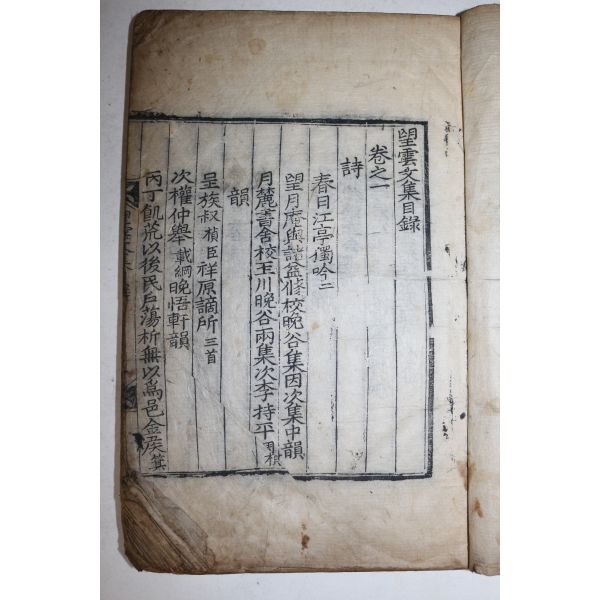 望雲文集目錄
卷之一
詩
春日江亭獨吟二
望月庵與諸益修校晚谷集因次集中韻
月麓書舍校玉川晚谷兩集次李持平周禎
韻
呈族叔楨臣祥原謫所三首
次權仲舉載綱晚悟軒韻
丙丁飢荒以後民戶蕩析無以爲邑金矦箕